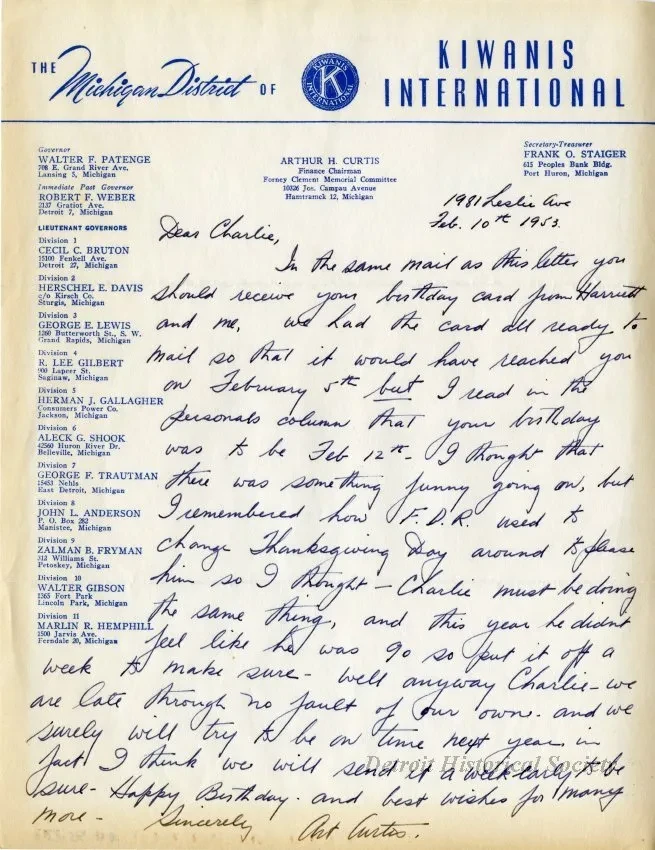 THE Michigan District OF KIWANIS INTERNATIONAL
K
KIWANIS INTERNATIONAL
Governor
WALTER F. PATENGE
708 E. Grand River Ave.
Lansing 5, Michigan
Immediate Past Governor
ROBERT F. WEBER
2137 Gratiot Ave.
Detroit 7, Michigan
LIEUTENANT GOVERNORS
Division 1
CECIL C. BRUTON
15100 Fenkell Ave.
Detroit 27, Michigan
Division 2
HERSCHEL E. DAVIS
c/o Kirsch Co.
Sturgis, Michigan
Division 3
GEORGE E. LEWIS
1260 Butterworth St., S. W.
Grand Rapids, Michigan
Division 4
R. LEE GILBERT
900 Lapeer St.
Saginaw, Michigan
Division 5
HERMAN J. GALLAGHER
Consumers Power Co.
Jackson, Michigan
Division 6
ALECK G. SHOOK
42560 Huron River Dr.
Belleville, Michigan
Division 7
GEORGE F. TRAUTMAN
15453 Nehls
East Detroit, Michigan
Division 8
JOHN L. ANDERSON
P. O. Box 282
Manistee, Michigan
Division 9
ZALMAN B. FRYMAN
312 Williams St.
Petoskey, Michigan
Division 10
WALTER GIBSON
1365 Fort Park
Lincoln Park, Michigan
Division 11
MARLIN R. HEMPHILL
1500 Jarvis Ave.
Ferndale 20, Michigan
ARTHUR H. CURTIS
Finance Chairman
Forney Clement Memorial Committee
10326 Jos. Campau Avenue
Hamtramck 12, Michigan
Secretary-Treasurer
FRANK O. STAIGER
615 Peoples Bank Bldg.
Port Huron, Michigan
1981 Leslie Ave
Feb. 10th 1953.
Dear Charlie,
In the same mail as this letter you
should receive your birthday card from Harriett
and me, we had the card all ready to
mail so that it would have reached you
on February 5th but I read in the
personals column that your birthday
was to be Feb 12th - I thought that
there was something funny going on, but
I remembered how F.D.R. used to
change Thanksgiving Day around to please
him so I thought - Charlie must be doing
the same thing, and this year he didnt
feel like he was 90 so put it off a
week to make sure - well anyway Charlie - we
are late through no fault of our own. and we
surely will try to be on time next year, in
fact I think we will send it a week early to be
sure - Happy Birthday. and best wishes for many
more - Sincerely Art Curtis.
Detroit Historical Society